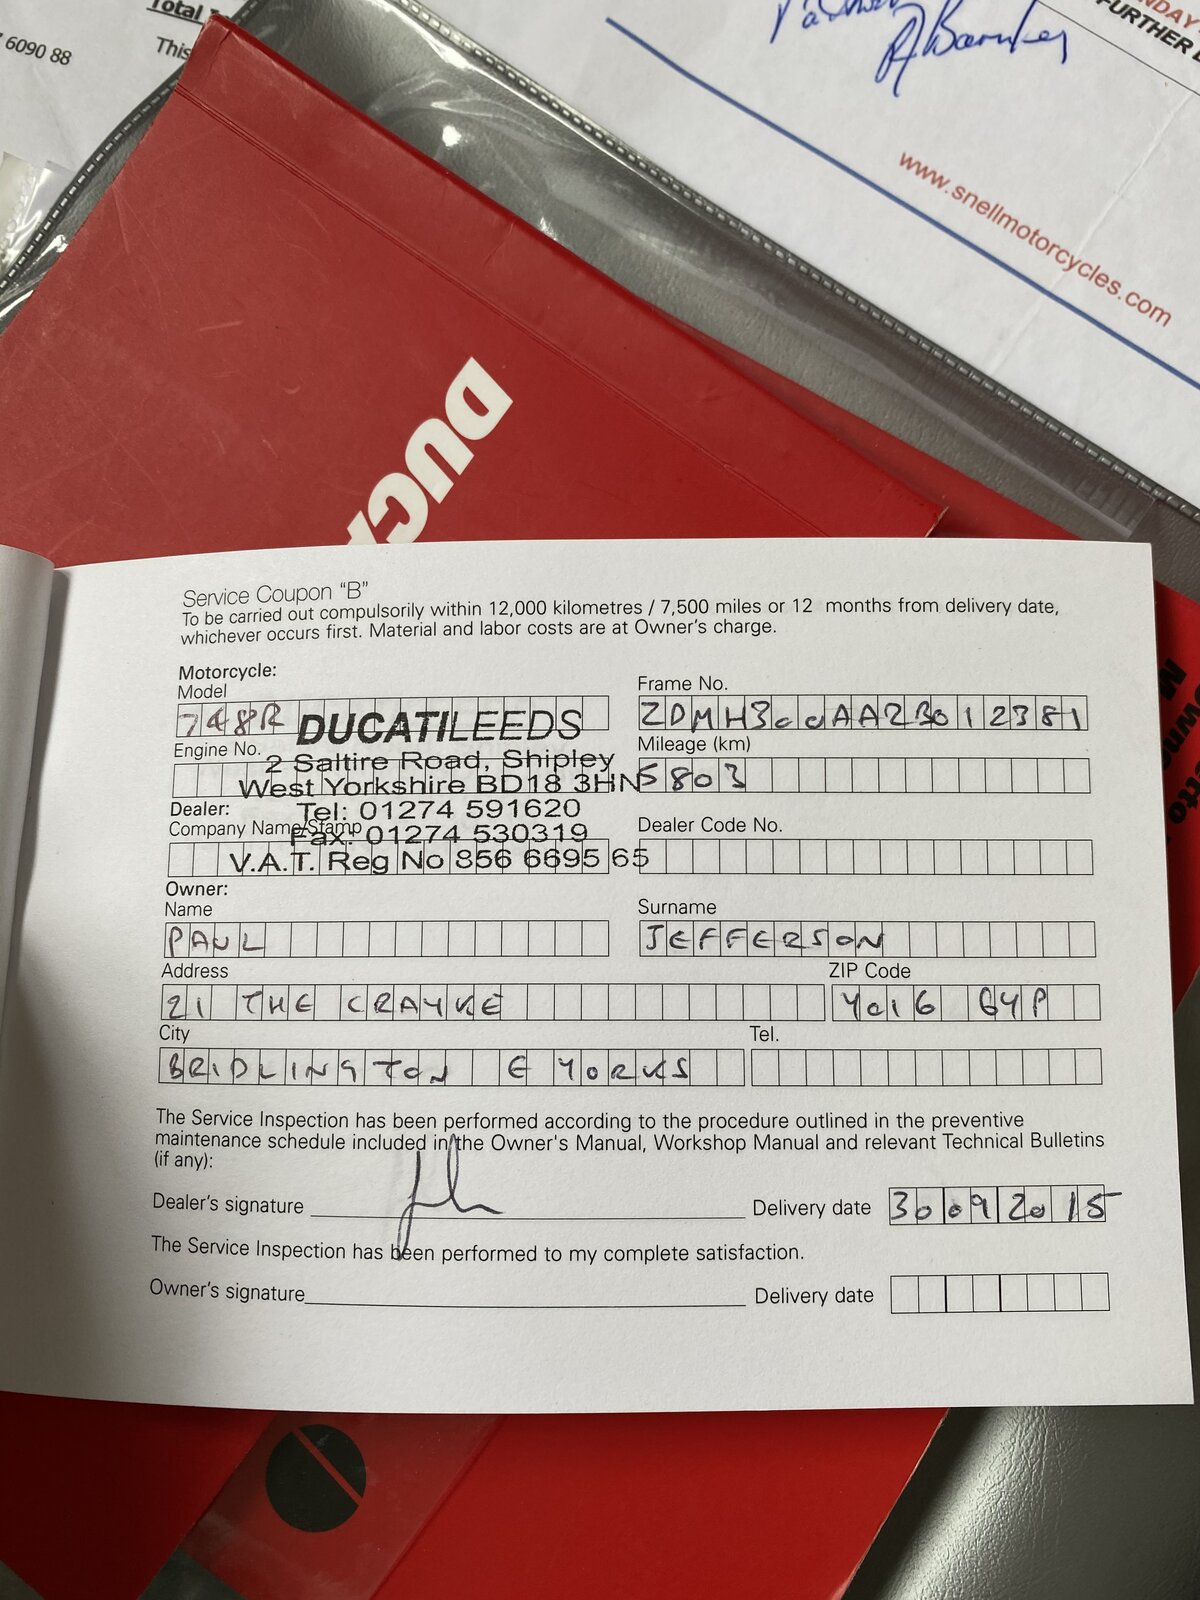 Total
6090 88
This
R Barnley
NDAY
FURTHER
www.snellmotorcycles.com
DUCA
Service Coupon “B”
To be carried out compulsorily within 12,000 kilometres / 7,500 miles or 12 months from delivery date,
whichever occurs first. Material and labor costs are at Owner's charge.
Motorcycle:
Model
748R
Frame No.
ZDMH300AA2B012381
DUCATILEEDS
2 Saltire Road, Shipley
West Yorkshire BD18 3HN
Tel: 01274 591620
Fax: 01274 530319
V.A.T. Reg No 856 6695 65
Engine No.
Mileage (km)
5803
Dealer:
Company Name/Stamp
Dealer Code No.
Owner:
Name
PAUL
Surname
JEFFERSON
Address
21 THE CRAYKE
ZIP Code
YO16 6YP
City
BRIDLINGTON E YORKS
Tel.
The Service Inspection has been performed according to the procedure outlined in the preventive
maintenance schedule included in the Owner's Manual, Workshop Manual and relevant Technical Bulletins
(if any):
Dealer's signature
Delivery date 30092015
The Service Inspection has been performed to my complete satisfaction.
Owner's signature
Delivery date